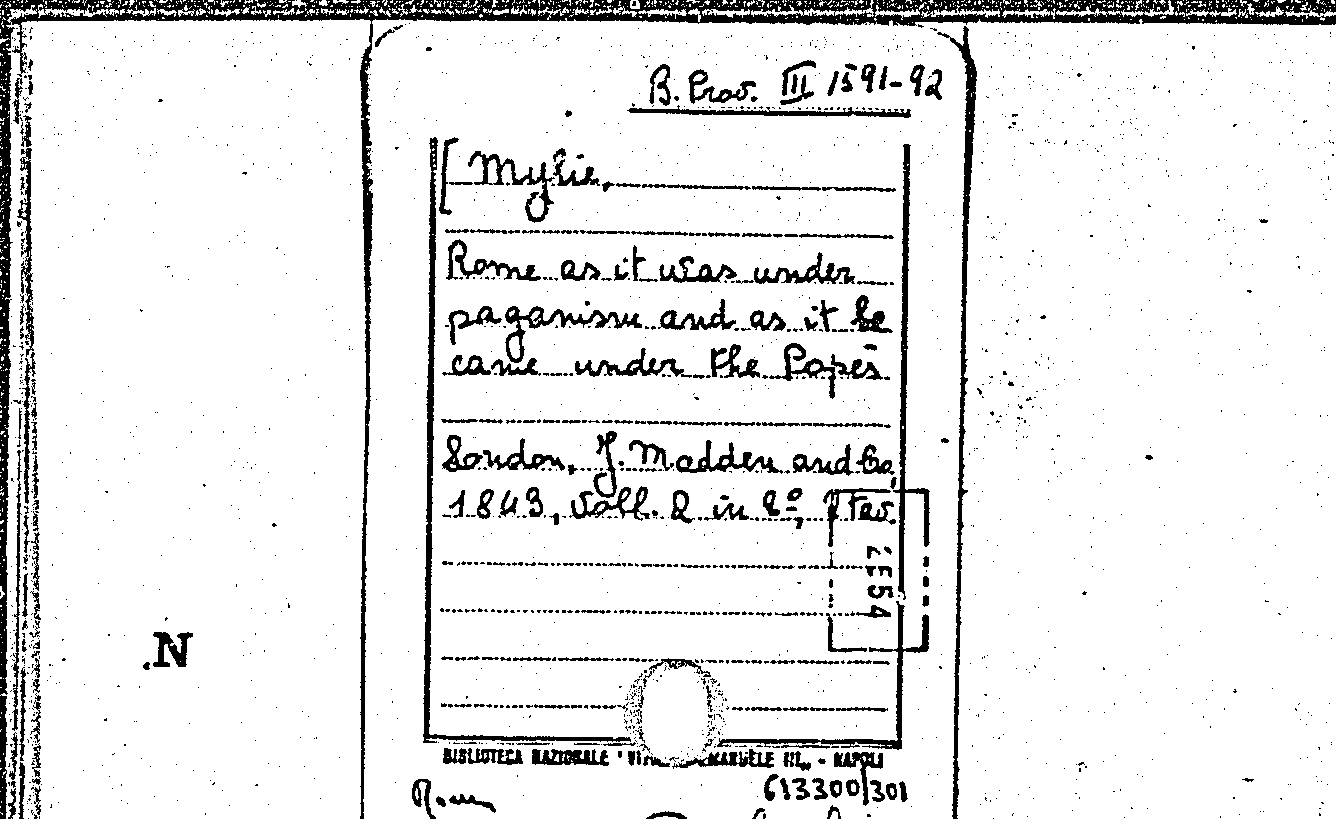 B. Prov. III 1591-92
[ Mylie,
Rome as it was under
paganism and as it be
came under the Popes
London, J. Madden and Co,
1843, Voll. 2 in 8º, 2 Tav.
N
BIBLIOTECA NAZIONALE "VITT. EMANUELE III" - NAPOLI
Roma
613300/301